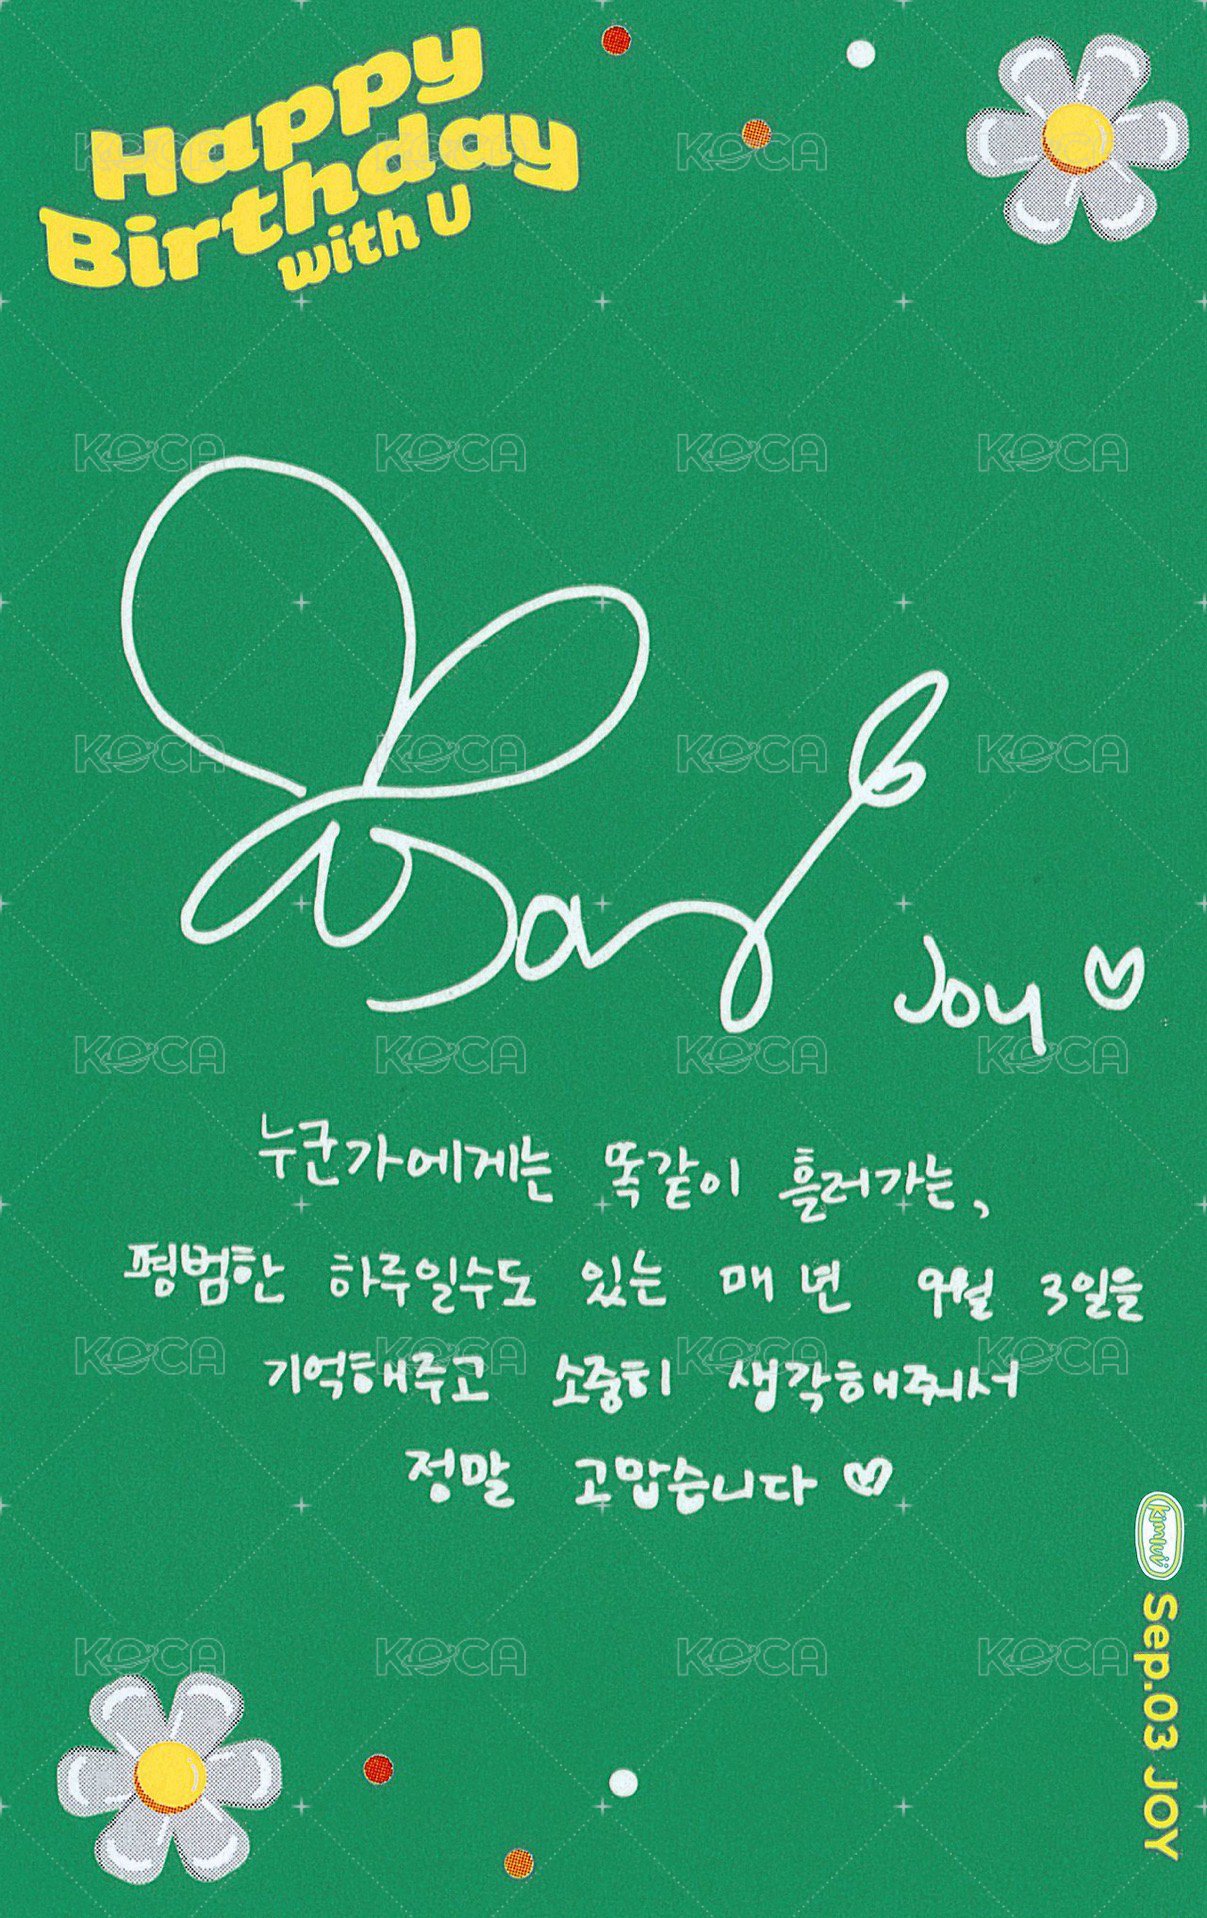 Happy
Birthday
with U
Joy
누군가에게는 똑같이 흘러가는,
평범한 하루일수도 있는 매 년 9월 3일을
기억해주고 소중히 생각해줘서
정말 고맙습니다
kimlvi
Sep.03 JOY
KOCA